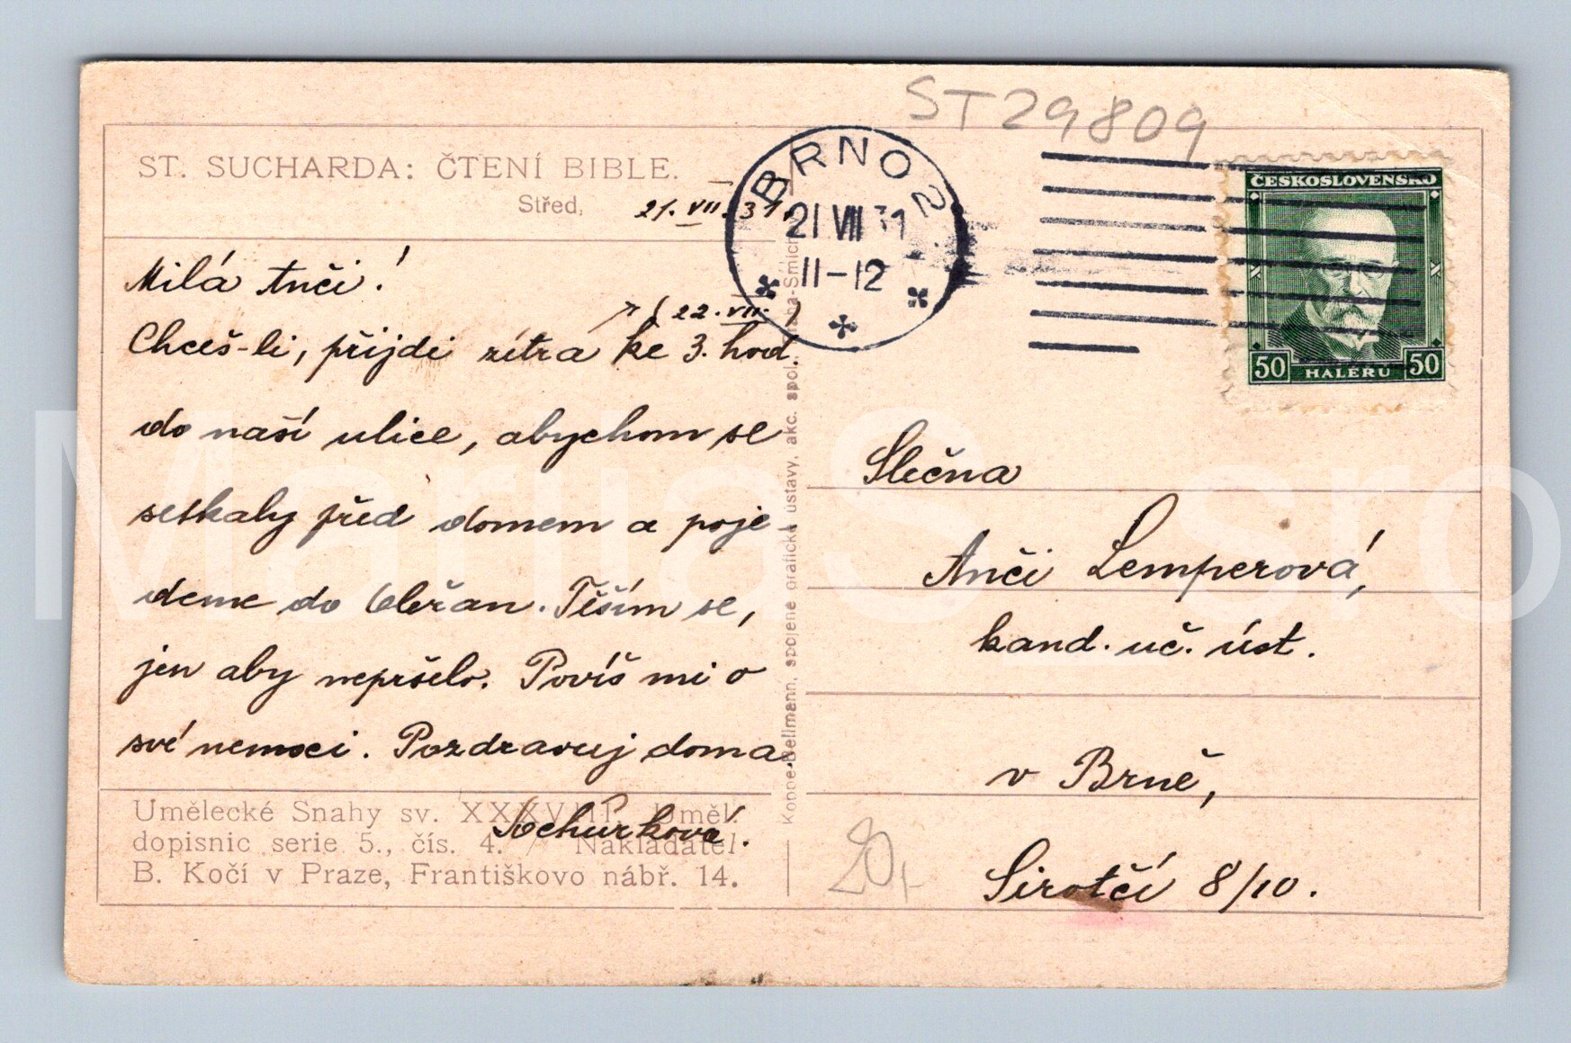 ST29809
ST. SUCHARDA: ČTENÍ BIBLE.
Střed, 21. VII. 31.
BRNO 2
21 VII 31
11-12
ČESKOSLOVENSKO
50 HALÉŘŮ 50
Milá Anči!
(22. VII.)
Chceš-li, přijdi zítra ke 3. hod.
do naší ulice, abychom se
setkaly před domem a poje
deme do Obřan. Těším se,
jen aby nepršelo. Povíš mi o
své nemoci. Pozdravuj doma.
Sochůrková.
Umělecké Snahy sv. XXXVIII. Uměl.
dopisnic serie 5., čís. 4. / Nakladatel
B. Kočí v Praze, Františkovo nábř. 14.
spojené grafické ústavy, akc. spol.
Slečna
Anči Lemperová,
kand. uč. úst.
v Brně,
Sirotčí 8/10.
20,-